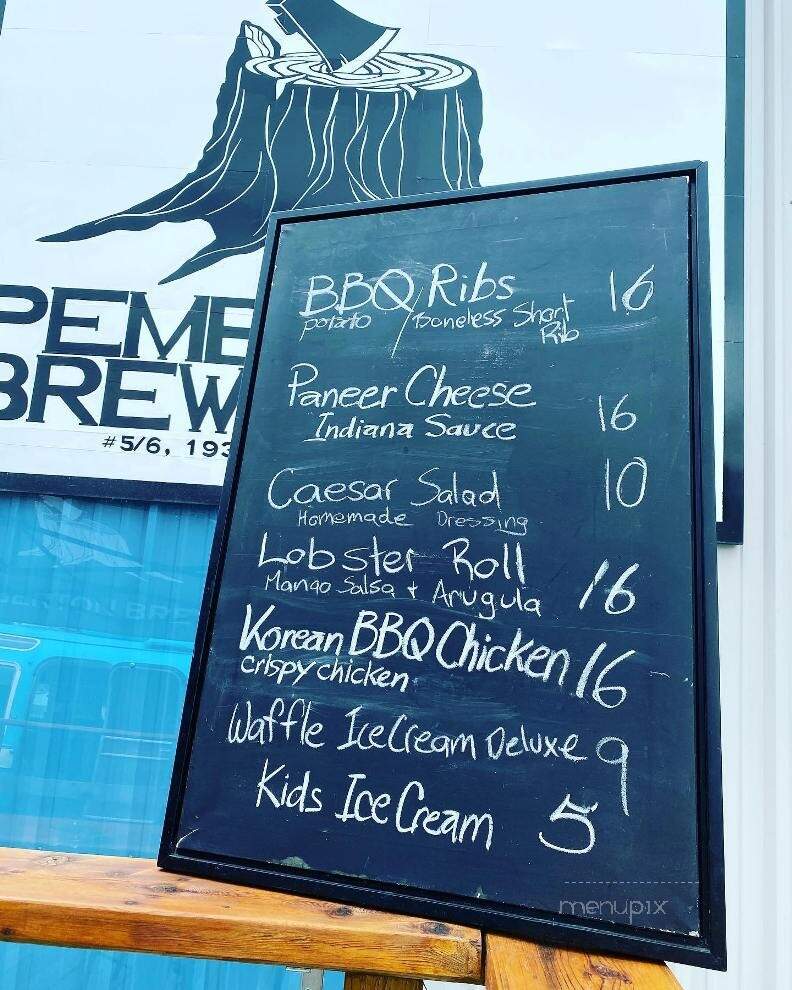 PEME
BREW
#5/6, 193
BBQ Ribs 16
potato / Boneless Short
Rib
Paneer Cheese
Indiana Sauce 16
Caesar Salad 10
Homemade Dressing
Lobster Roll
Mango Salsa + Arugula 16
Korean BBQ Chicken 16
crispy chicken
Waffle Ice Cream Deluxe 9
Kids Ice Cream 5
menupix